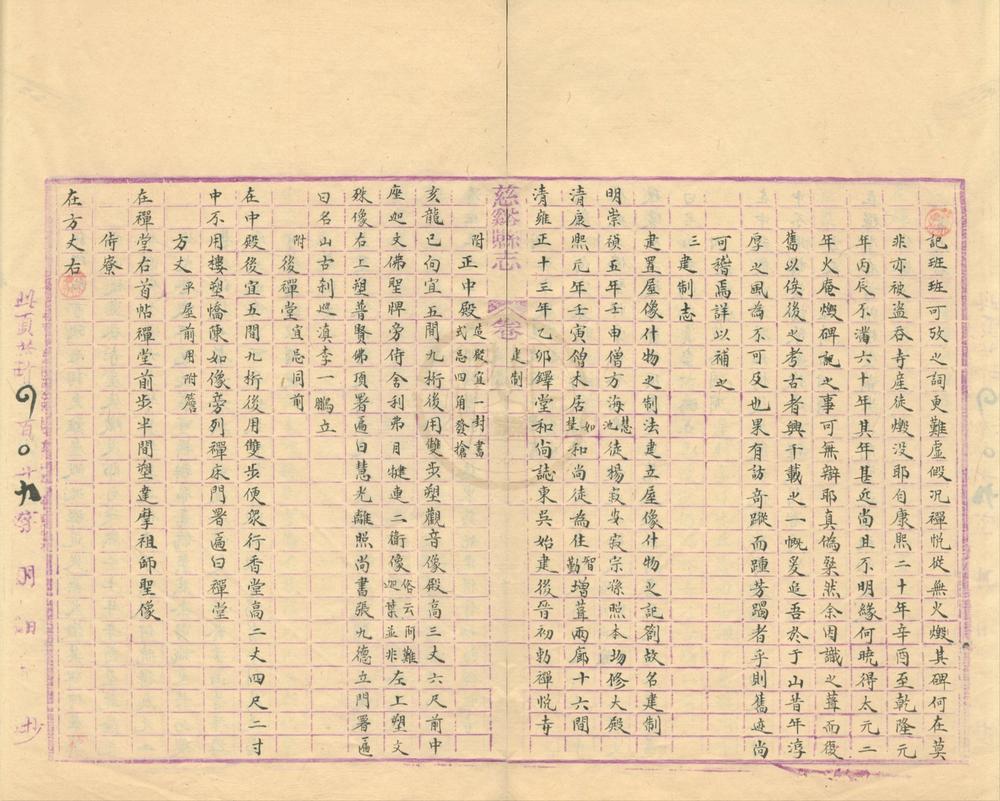 記班班可攷之詞更難虛假况禪悅從無火燬其碑何在莫
非亦被盜吞寺產徒燬没耶自康熙二十年辛酉至乾隆元
年丙辰不滿六十年其年甚近尚且不明緣何曉得太元二
年火庵燬碑記之事可無辯耶真僞粲然余因識之葺而復
舊以俟後之考古者興千載之一慨爰追吾於于山昔年淳
厚之風論不可及也果有訪奇蹤而踵芳躅者乎則舊迹尚
可稽焉詳以補之
三建制志
建置屋像什物之制法建立屋像什物之記劄故名建制
明崇禎五年壬申僧方海慧池徒楊寂安寂宗孫照本場修大殿
清康熙元年壬寅僧木居如和尚徒為住智勤增葺兩廊十六間
清雍正十三年乙卯鐸堂和尚誌東吳始建後晉初勅禪悅寺
慈谿縣志 卷 建制
附正中殿造殿宜一封書式忌四角發搶
亥龍巳向宜五間九桁後用雙步塑觀音像殿高三丈六尺前中
座迦文佛聖牌旁侍舍利弗目犍連二衛像俗云阿難迦葉並非左上塑文
殊像右上塑普賢佛項署匾曰慧光離照尚書張九德立門署匾
曰名山古刹巡滇李一鵬立
附後禪堂宜忌同前
在中殿後宜五間九桁後用雙步便衆行香堂高二丈四尺二寸
中不用樓塑憍陳如像旁列禪床門署匾曰禪堂
方丈平屋前用附簷
在禪堂右首帖禪堂前步半間塑達摩祖師聖像
侍寮
在方丈右